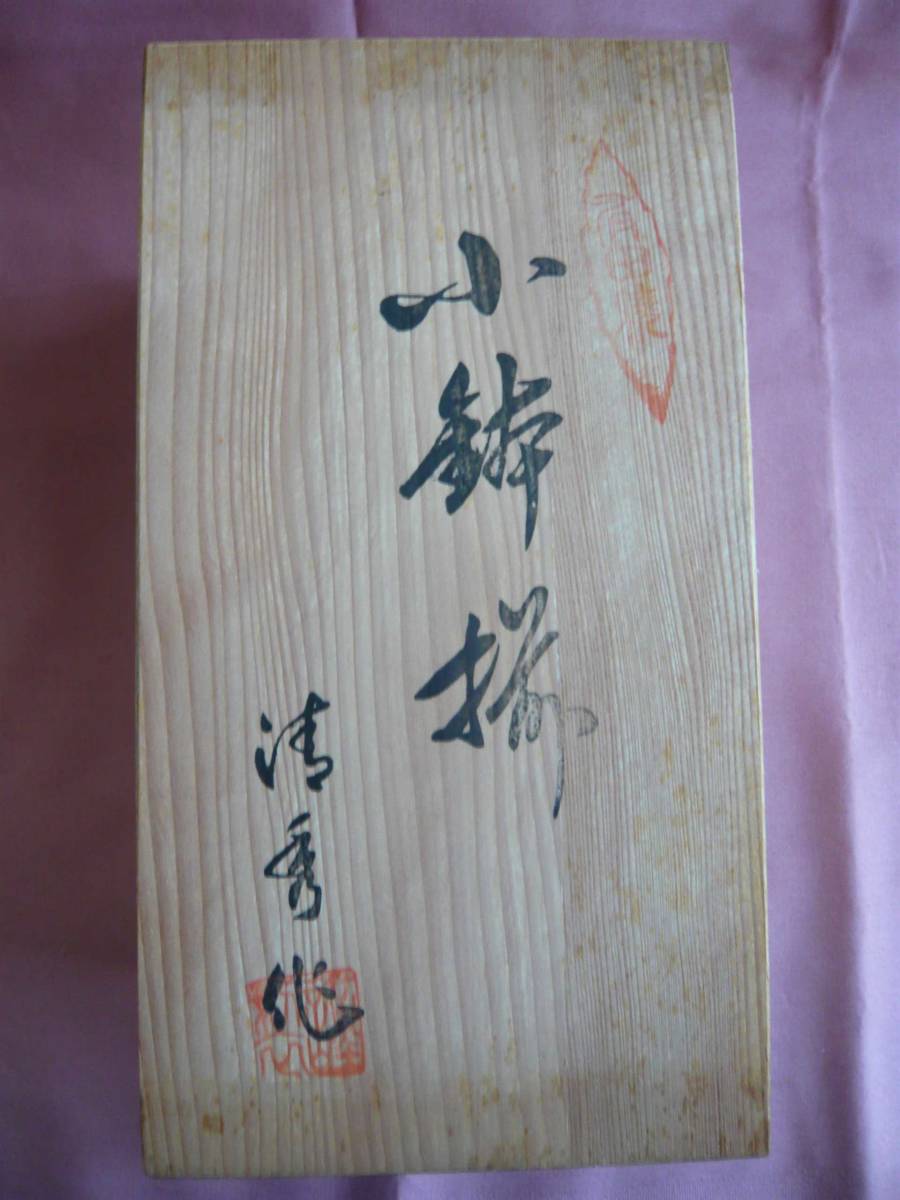 小鉢揃
清秀作